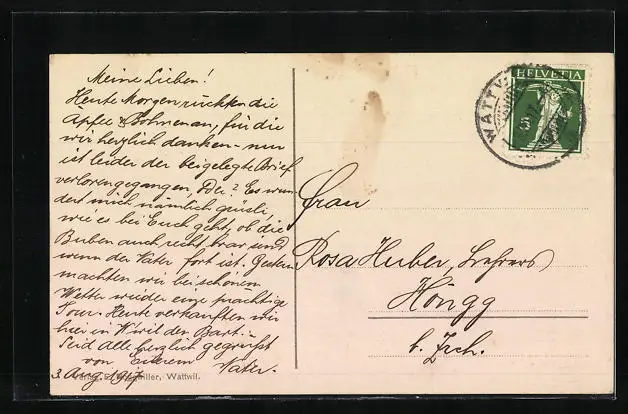 Meine Lieben!
Heute Morgen rückten die
Äpfel & Bohnen an, für die
wir herzlich danken – nur
ist leider der beigelegte Brief
verlorengegangen, Oder? Es wun-
dert mich nämlich
wie es bei Euch geht, ob die
Buben auch recht brav sind
wenn der Vater fort ist. Gestern
machten wir bei schönem
Wetter wieder eine prächtige
Tour. Heute verkauften wir
hier in Wil den Bart.
Seid Alle herzlich gegrüsst
von Eurem Vater.
3. Aug. 1917
Wattwil.
HELVETIA
5
WATTW
Frau
Rosa Huber, Lehrers
Höngg
b. Zrch.